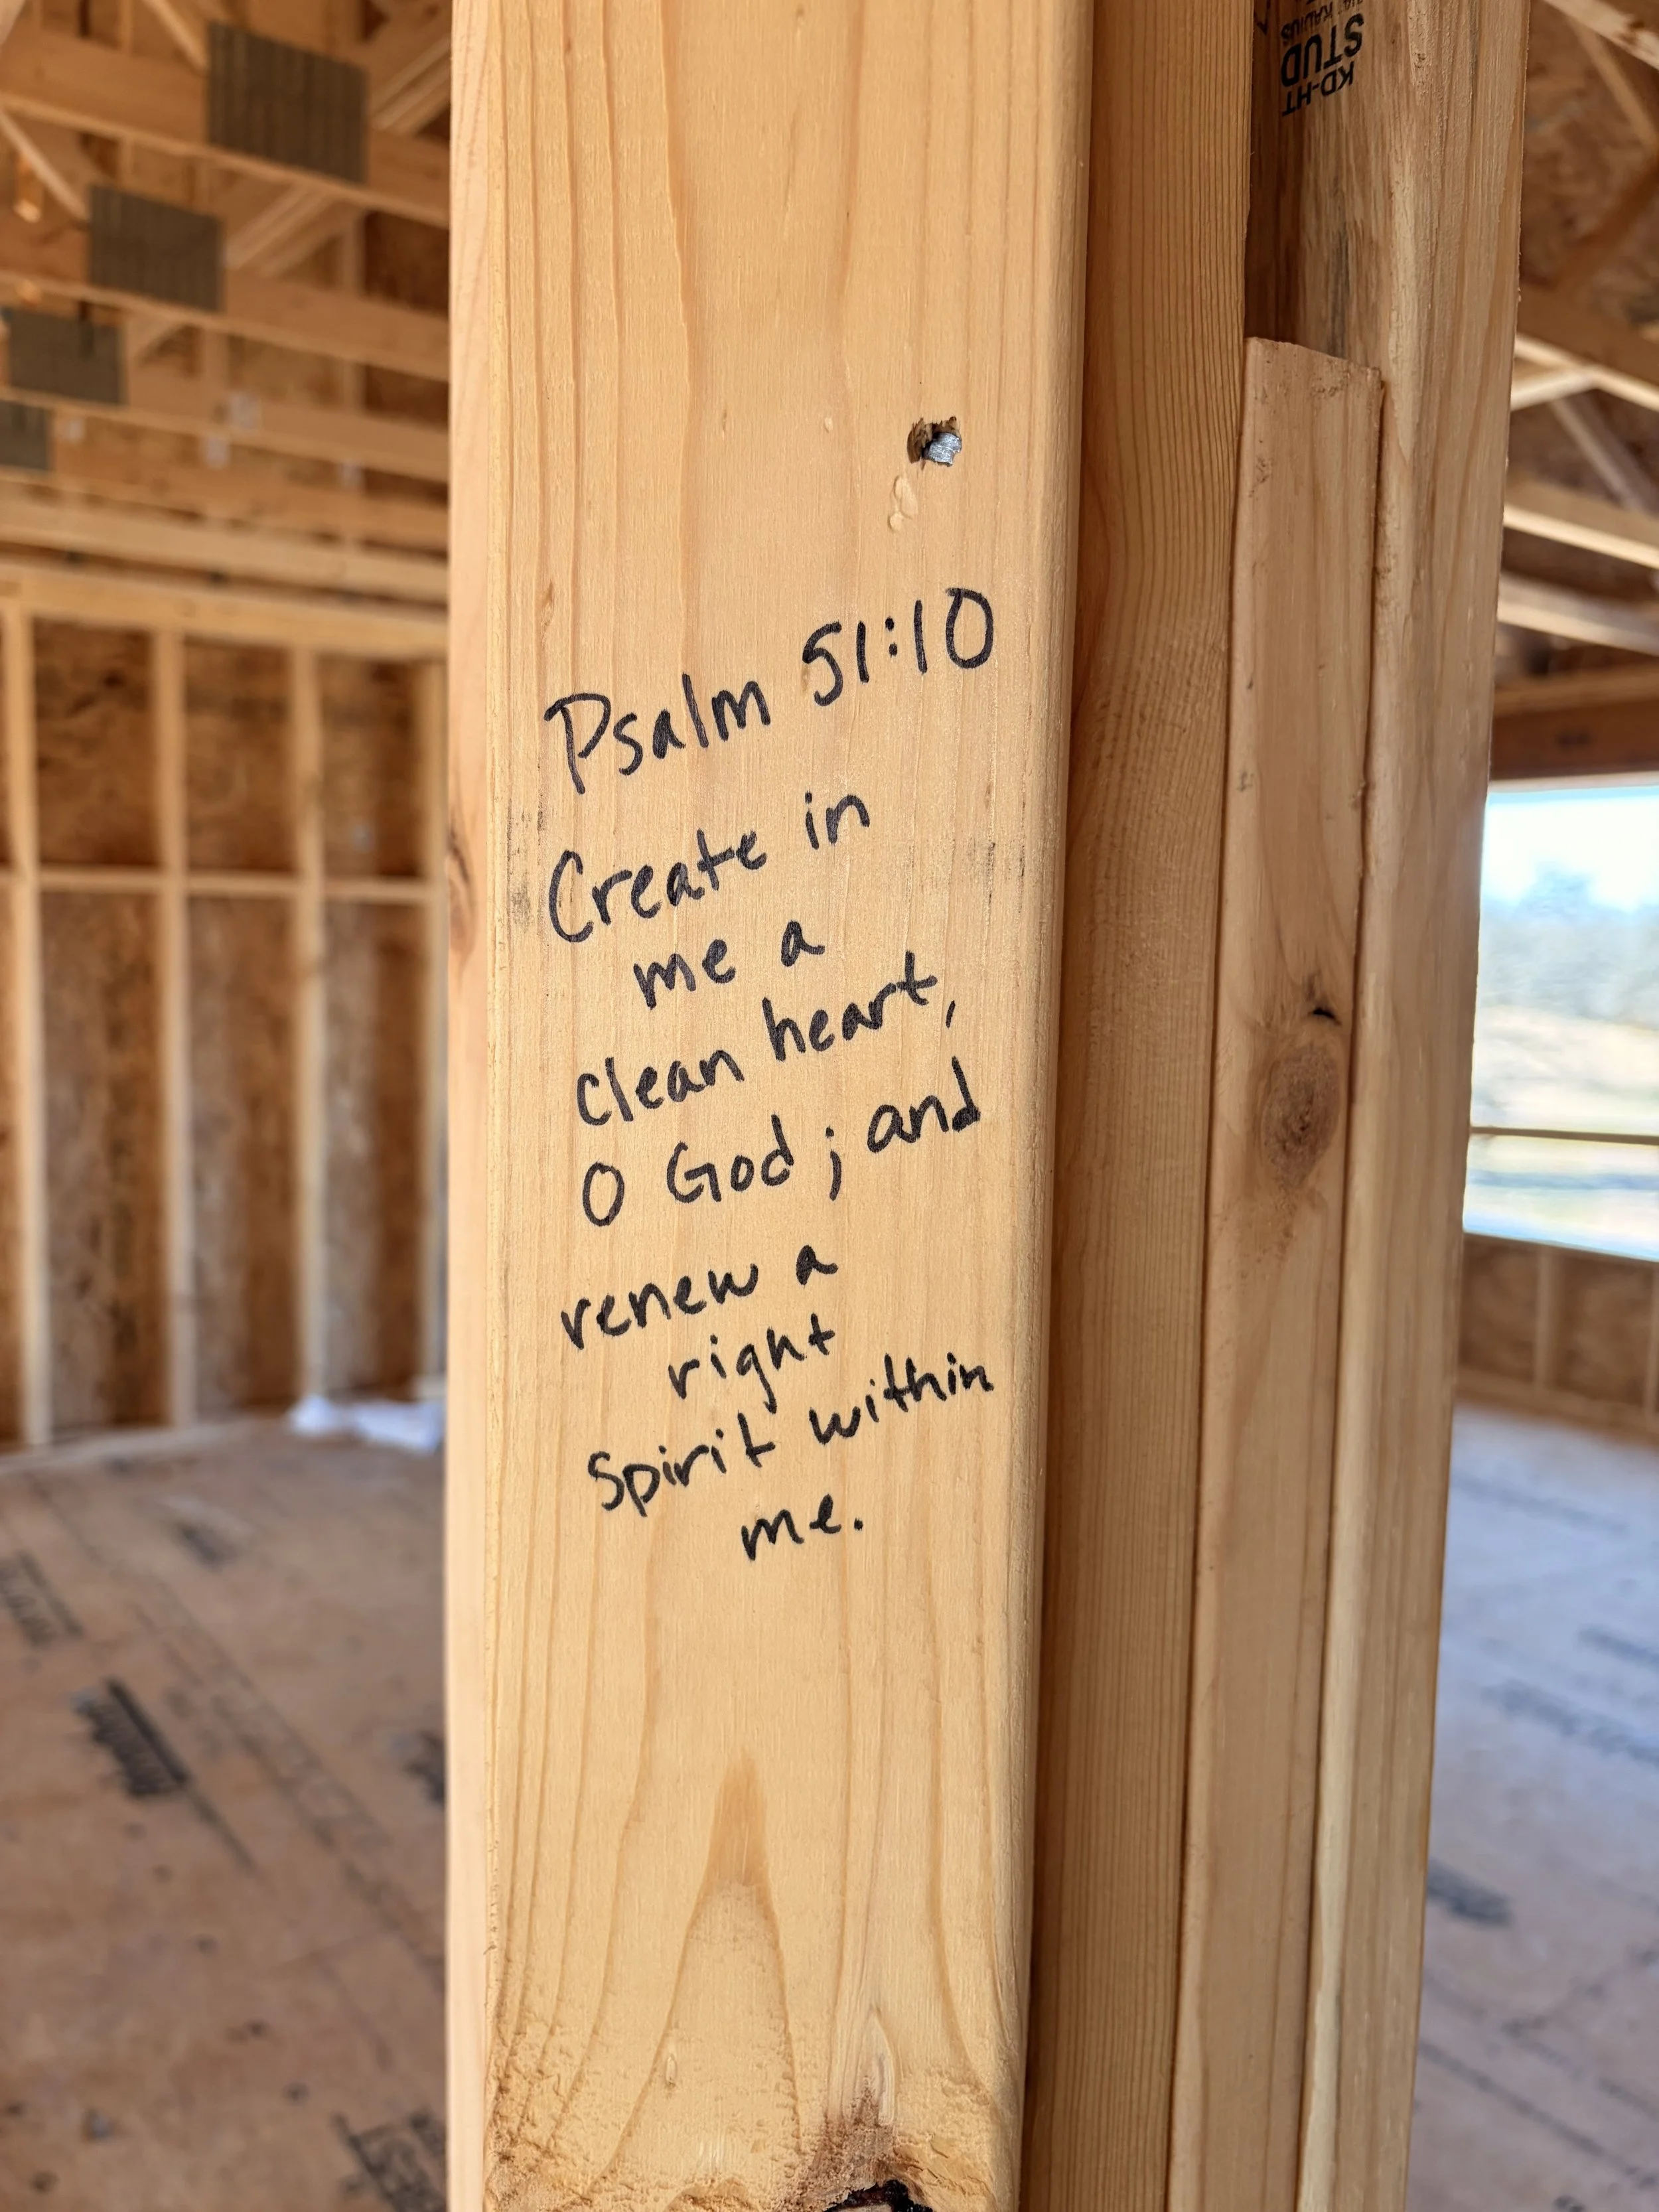 Psalm 51:10
Create in
me a
clean heart,
O God; and
renew a
right
spirit within
me.
KD-HT
STUD